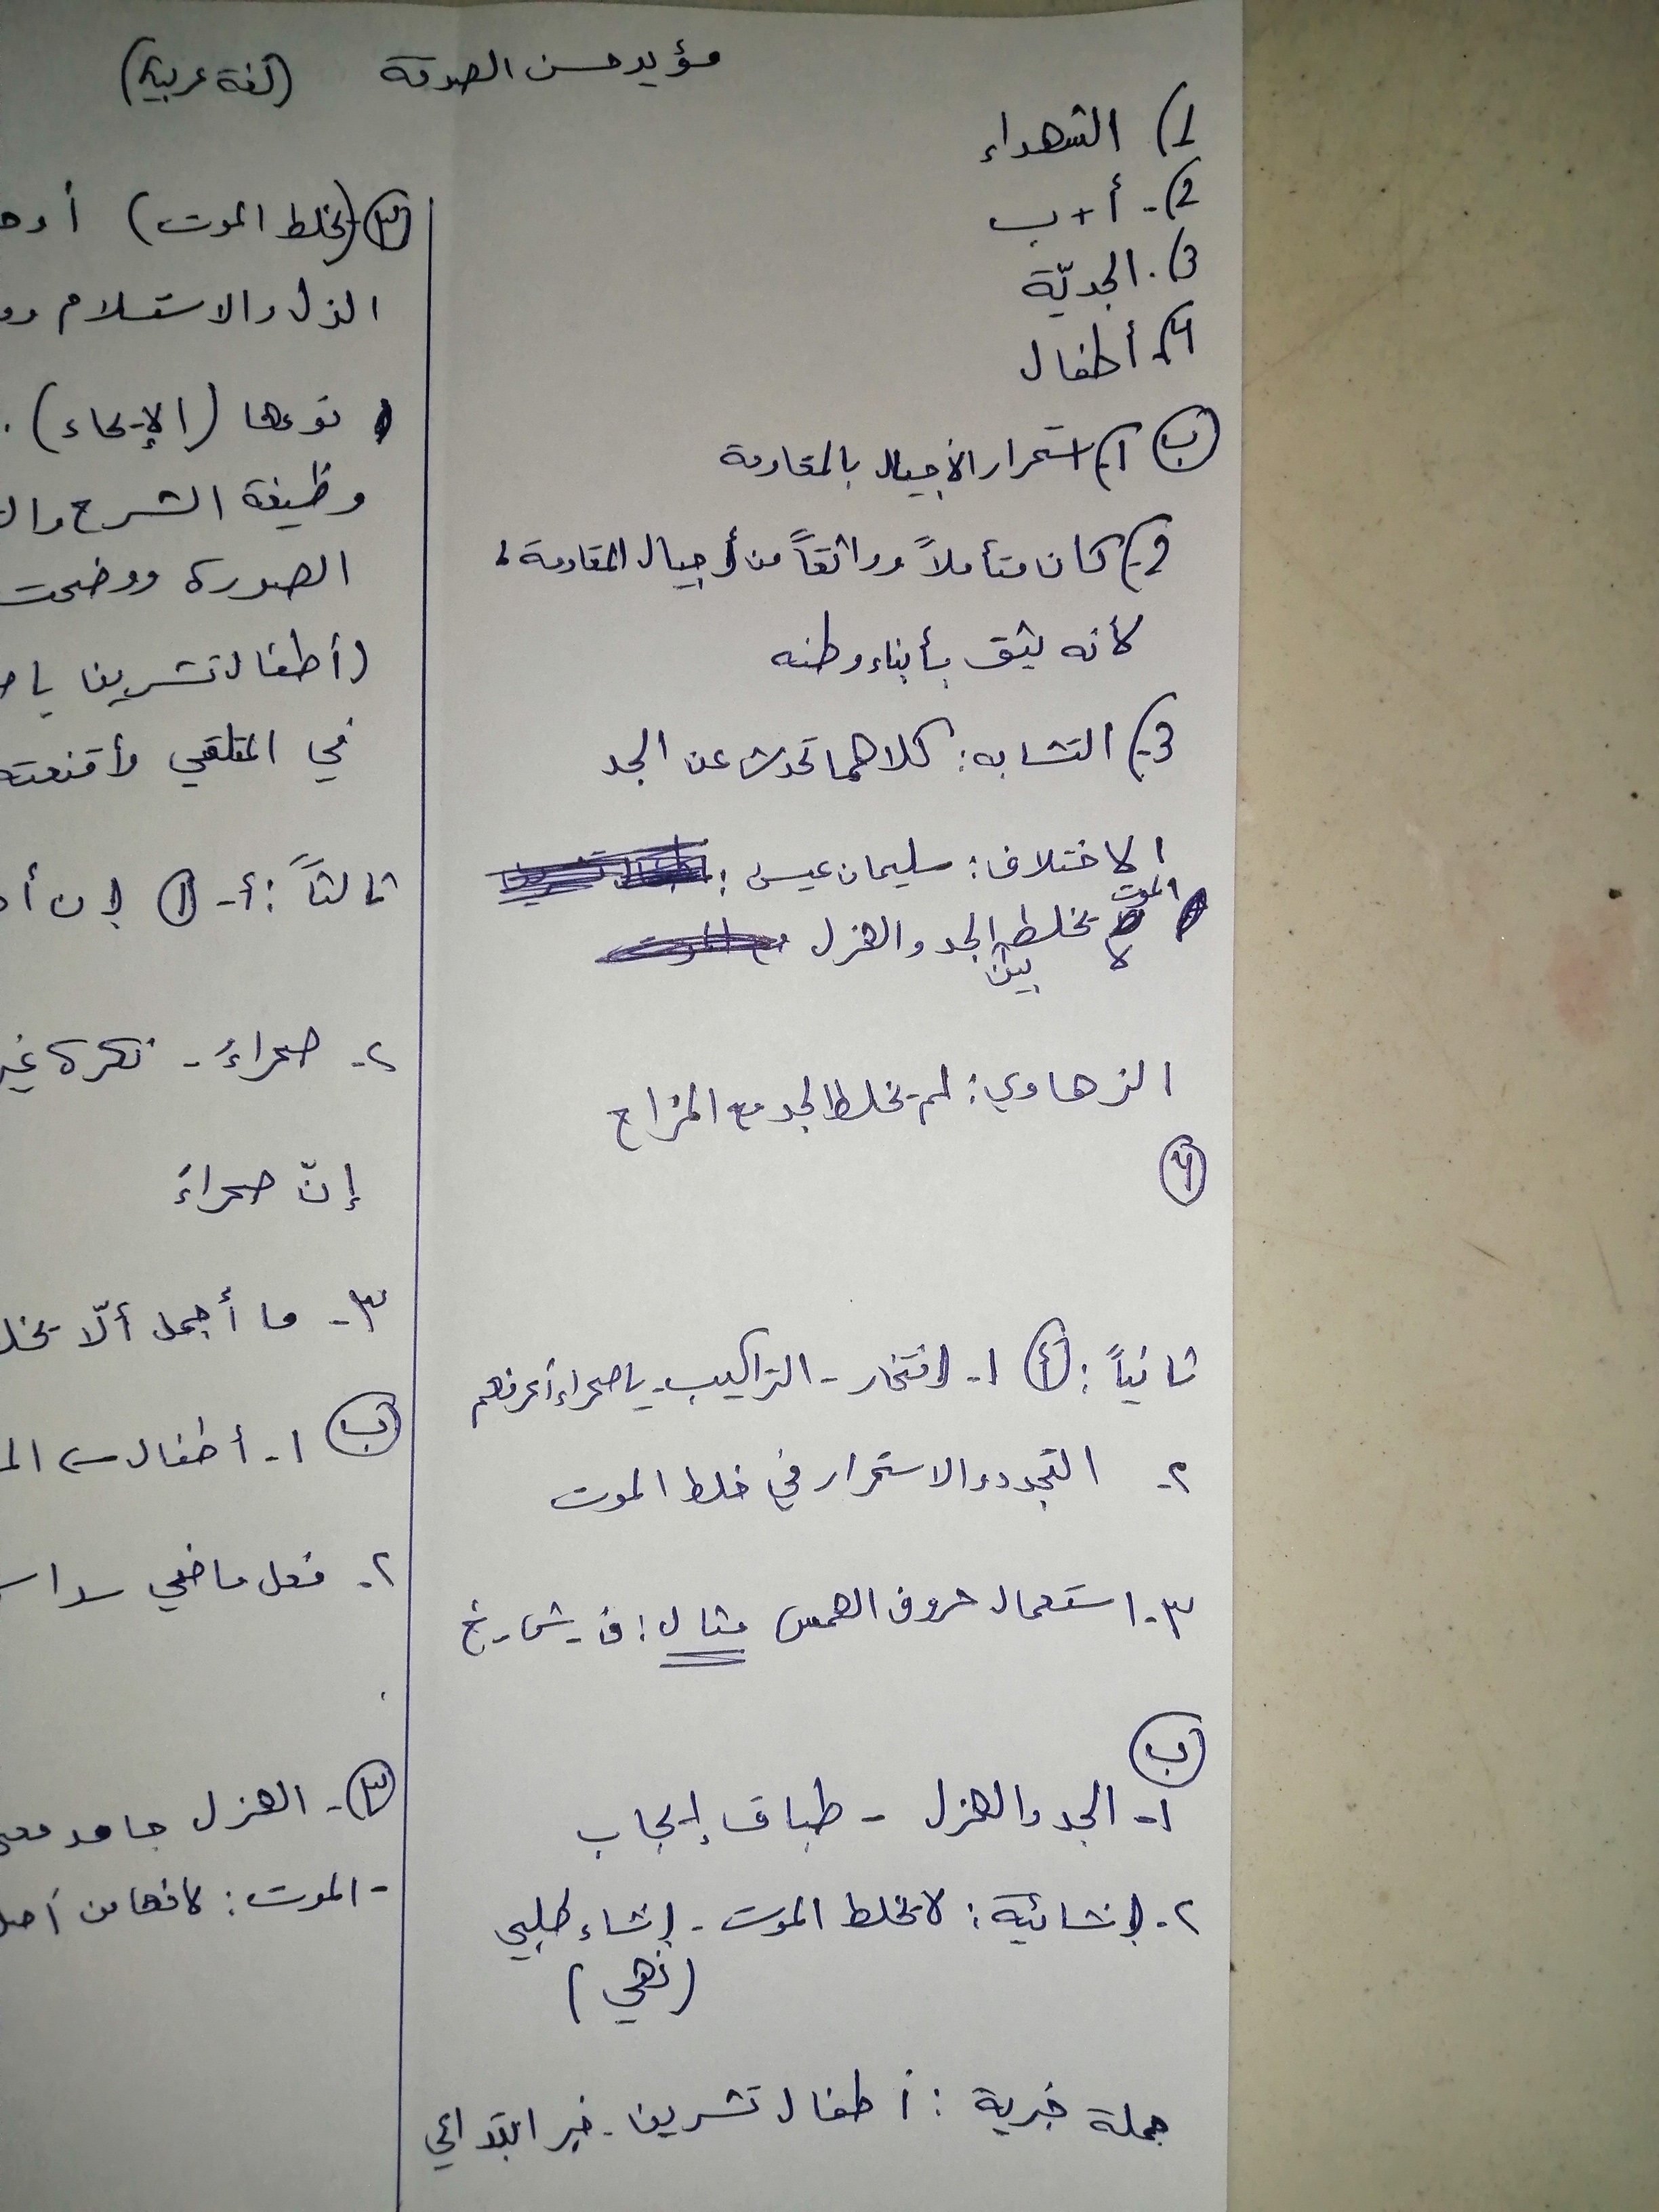 مؤيد حسن الصدقة (لغة عربية)
1) الشهداء
2)- أ + ب
3). الجديّة
4)- أطفال
ب 1) استمرار الأجيال بالمقاومة
2-) كان متأملاً وواثقاً من أجيال المقاومة
لأنه يثق بأبناء وطنه
3-) التشابه: كلاهما تحدث عن الجد
الاختلاف: سليمان عيسى:
الموت لا يخلط بين الجد والهزل
الزهاوي: لم يخلط الجد مع المزاح
4
ثانياً: أ ١- افتخار - التراكيب - يا صحراء أعرفهم
٢- التجدد والاستمرار في خلط الموت
٣- استعمال حروف الهمس مثال: ف - ش - خ
ب
١- الجد والهزل - طباق إيجاب
٢- إنشائية: لا يخلط الموت - إنشاء طلبي
(نهي)
جملة خبرية: أطفال تشرين - خبر ابتدائي
٣ (يخلط الموت)
الذل والاستسلام
نوعها (الإيحاء).
وظيفة الشرح
الصورة ووضحت
(أطفال تشرين
في المتلقي وأقنعته
ثالثاً: أ- ١ إن
٢- صحراءُ - نكرة
إنّ صحراءَ
٣- ما أجمل ألّا
ب ١- أطفال
٢- فعل ماضي
٣- الهزل جامد
- الموت: لأنها من